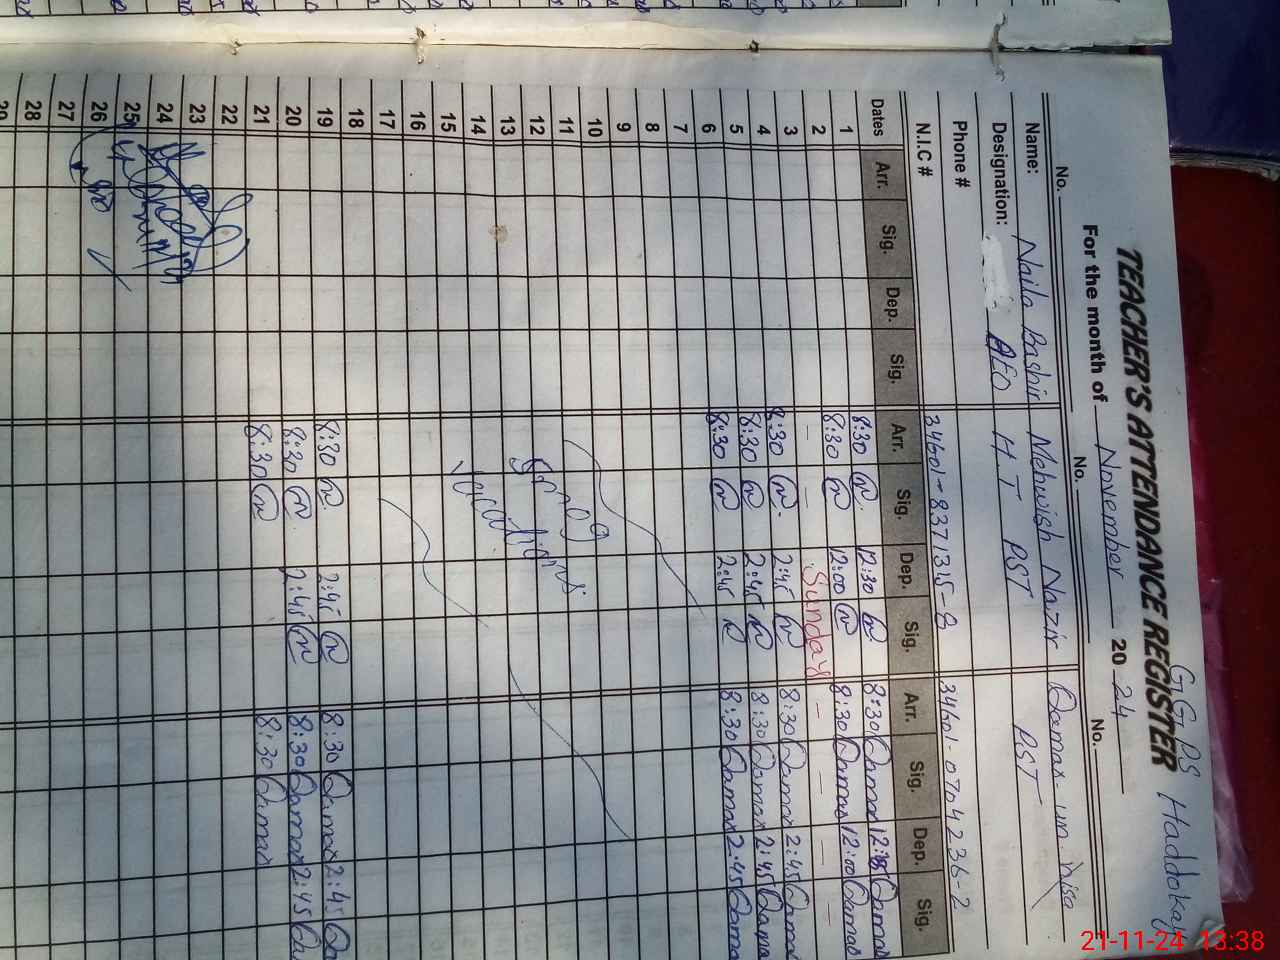 GGPS Haddokay
TEACHER'S ATTENDANCE REGISTER
For the month of November 2024
No. No. No.
Name: Naila Bashir Mehwish Nazir Qamar-un-Nisa
Designation: AEO H.T PST PST
Phone #
N.I.C # 34601-8371315-8 34601-0704236-2
Dates Arr. Sig. Dep. Sig. Arr. Sig. Dep. Sig. Arr. Sig. Dep. Sig.
8:30 12:30 8:30 Qamar Qamar
1 8:30 12:00 8:30 Qamar 12:00 Qamar
2 — — Sunday — — —
3 8:30 2:45 8:30 Qamar 2:45 Qamar
4 8:30 2:45 8:30 Qamar 2:45 Qama
5 8:30 2:45 8:30 Qamar 2:45 Qama
6
7
8
9
10
11
12 Smog
13 Vacations
14
15
16
17
18
19 8:30 2:45 8:30 Qamar 2:45 Qa
20 8:30 2:45 8:30 Qamar 2:45 Qa
21 8:30 8:30 Qamar
22
23
24
25
26
27
28
29
21-11-24 13:38